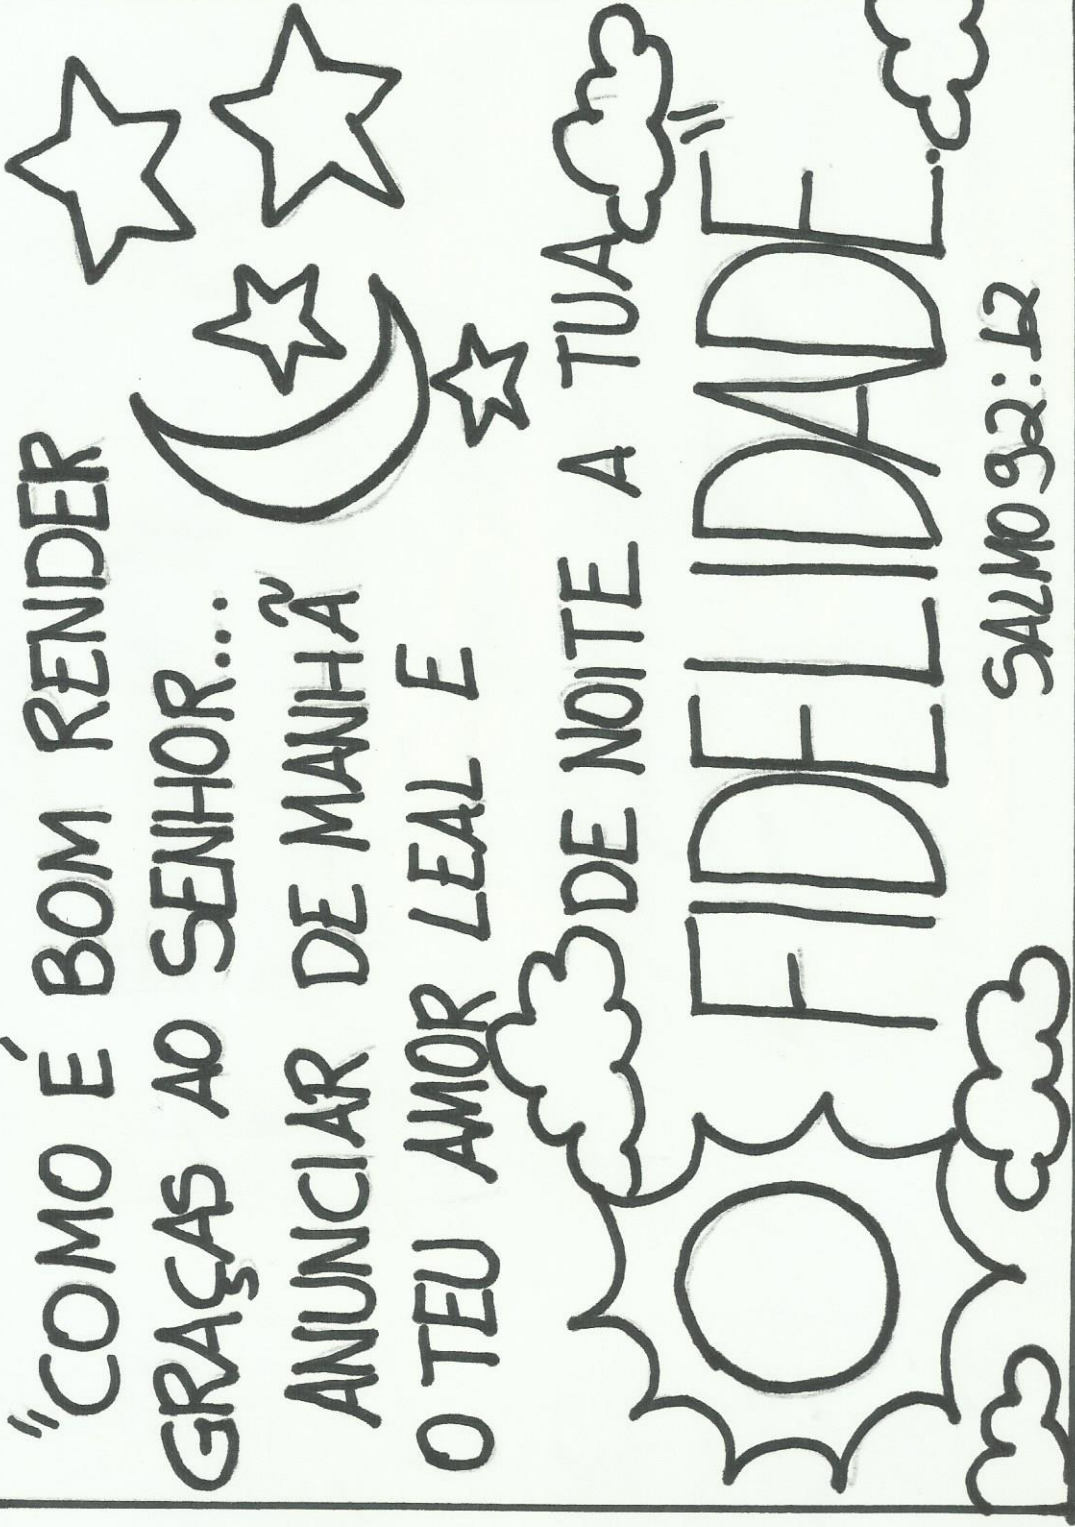 "COMO É BOM RENDER
GRAÇAS AO SENHOR...
ANUNCIAR DE MANHÃ
O TEU AMOR LEAL E
DE NOITE A TUA
FIDELIDADE."
SALMO 92:12